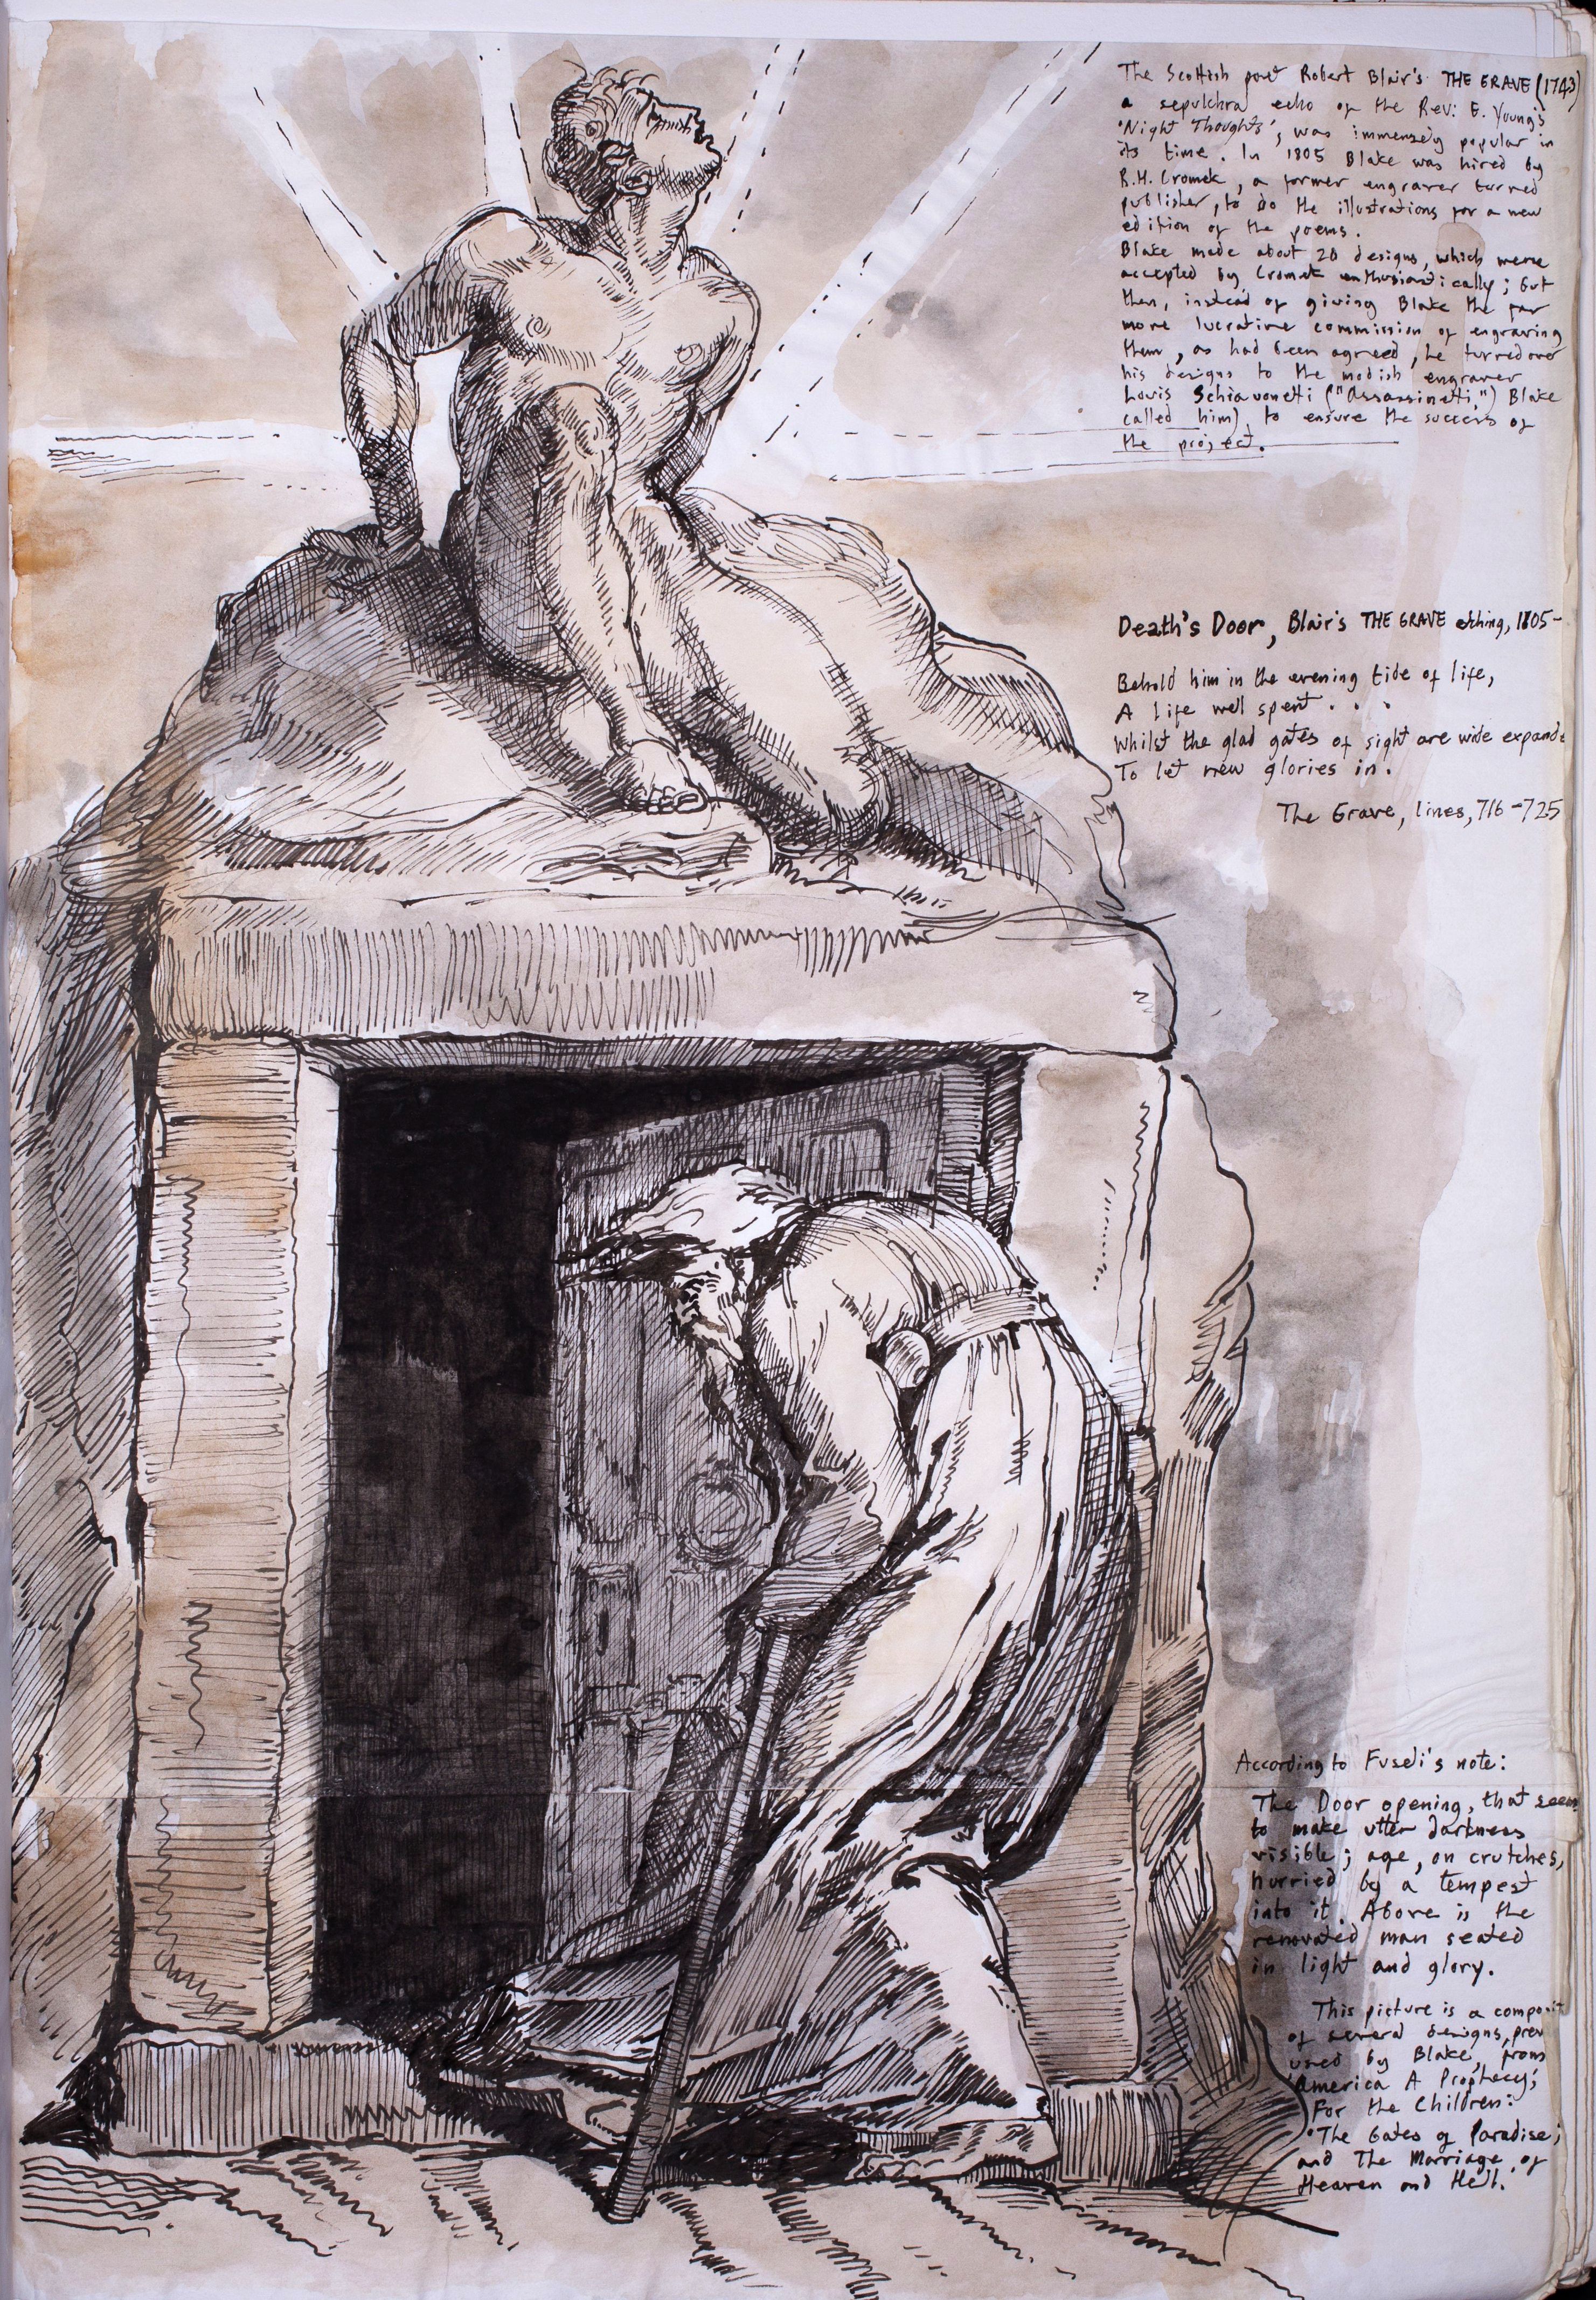 The Scottish poet Robert Blair's THE GRAVE (1743)
a sepulchral echo of the Rev: E. Young's
'Night Thoughts', was immensely popular in
its time. In 1805 Blake was hired by
R.H. Cromek, a former engraver turned
publisher, to do the illustrations for a new
edition of the poems.
Blake made about 20 designs, which were
accepted by Cromek enthusiastically; but
then, instead of giving Blake the far
more lucrative commission of engraving
them, as had been agreed, he turned over
his designs to the modish engraver
Louis Schiavonetti ("Assassinetti,") Blake
called him), to ensure the success of
the project.
Death's Door, Blair's THE GRAVE etching, 1805-
Behold him in the evening tide of life,
A life well spent . . .
Whilst the glad gates of sight are wide expand
To let new glories in.
The Grave, lines, 716-725
According to Fuseli's note:
The Door opening, that seem
to make utter darkness
visible; age, on crutches,
hurried by a tempest
into it. Above is the
renovated man seated
in light and glory.
This picture is a composit
of several designs, prev
used by Blake, from
'America A Prophecy;
For the Children:
'The Gates of Paradise;
and The Marriage of
Heaven and Hell.